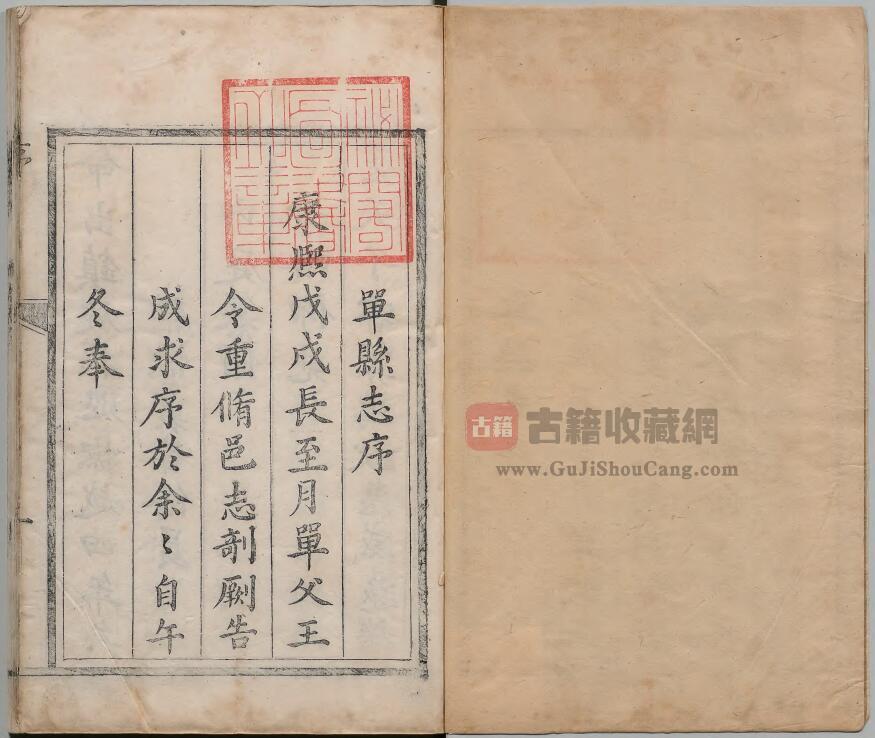 單縣志序
康熙戊戌長至月單父王
令重脩邑志剞劂告
成求序於余〻自午
冬奉
古籍
古籍收藏網
www.GuJiShouCang.com